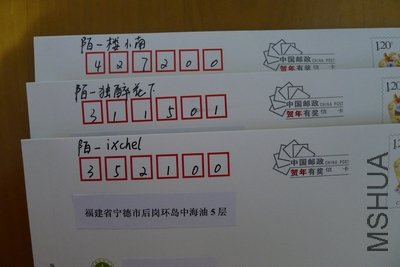 陌-楼小南
427200
中国邮政
CHINA POST
贺年有奖信卡
120
陌-独醉花下
311501
中国邮政
CHINA POST
贺年有奖信卡
120
陌-ixchel
352100
中国邮政
CHINA POST
贺年有奖信卡
福建省宁德市后岗环岛中海油5层
MSHUA